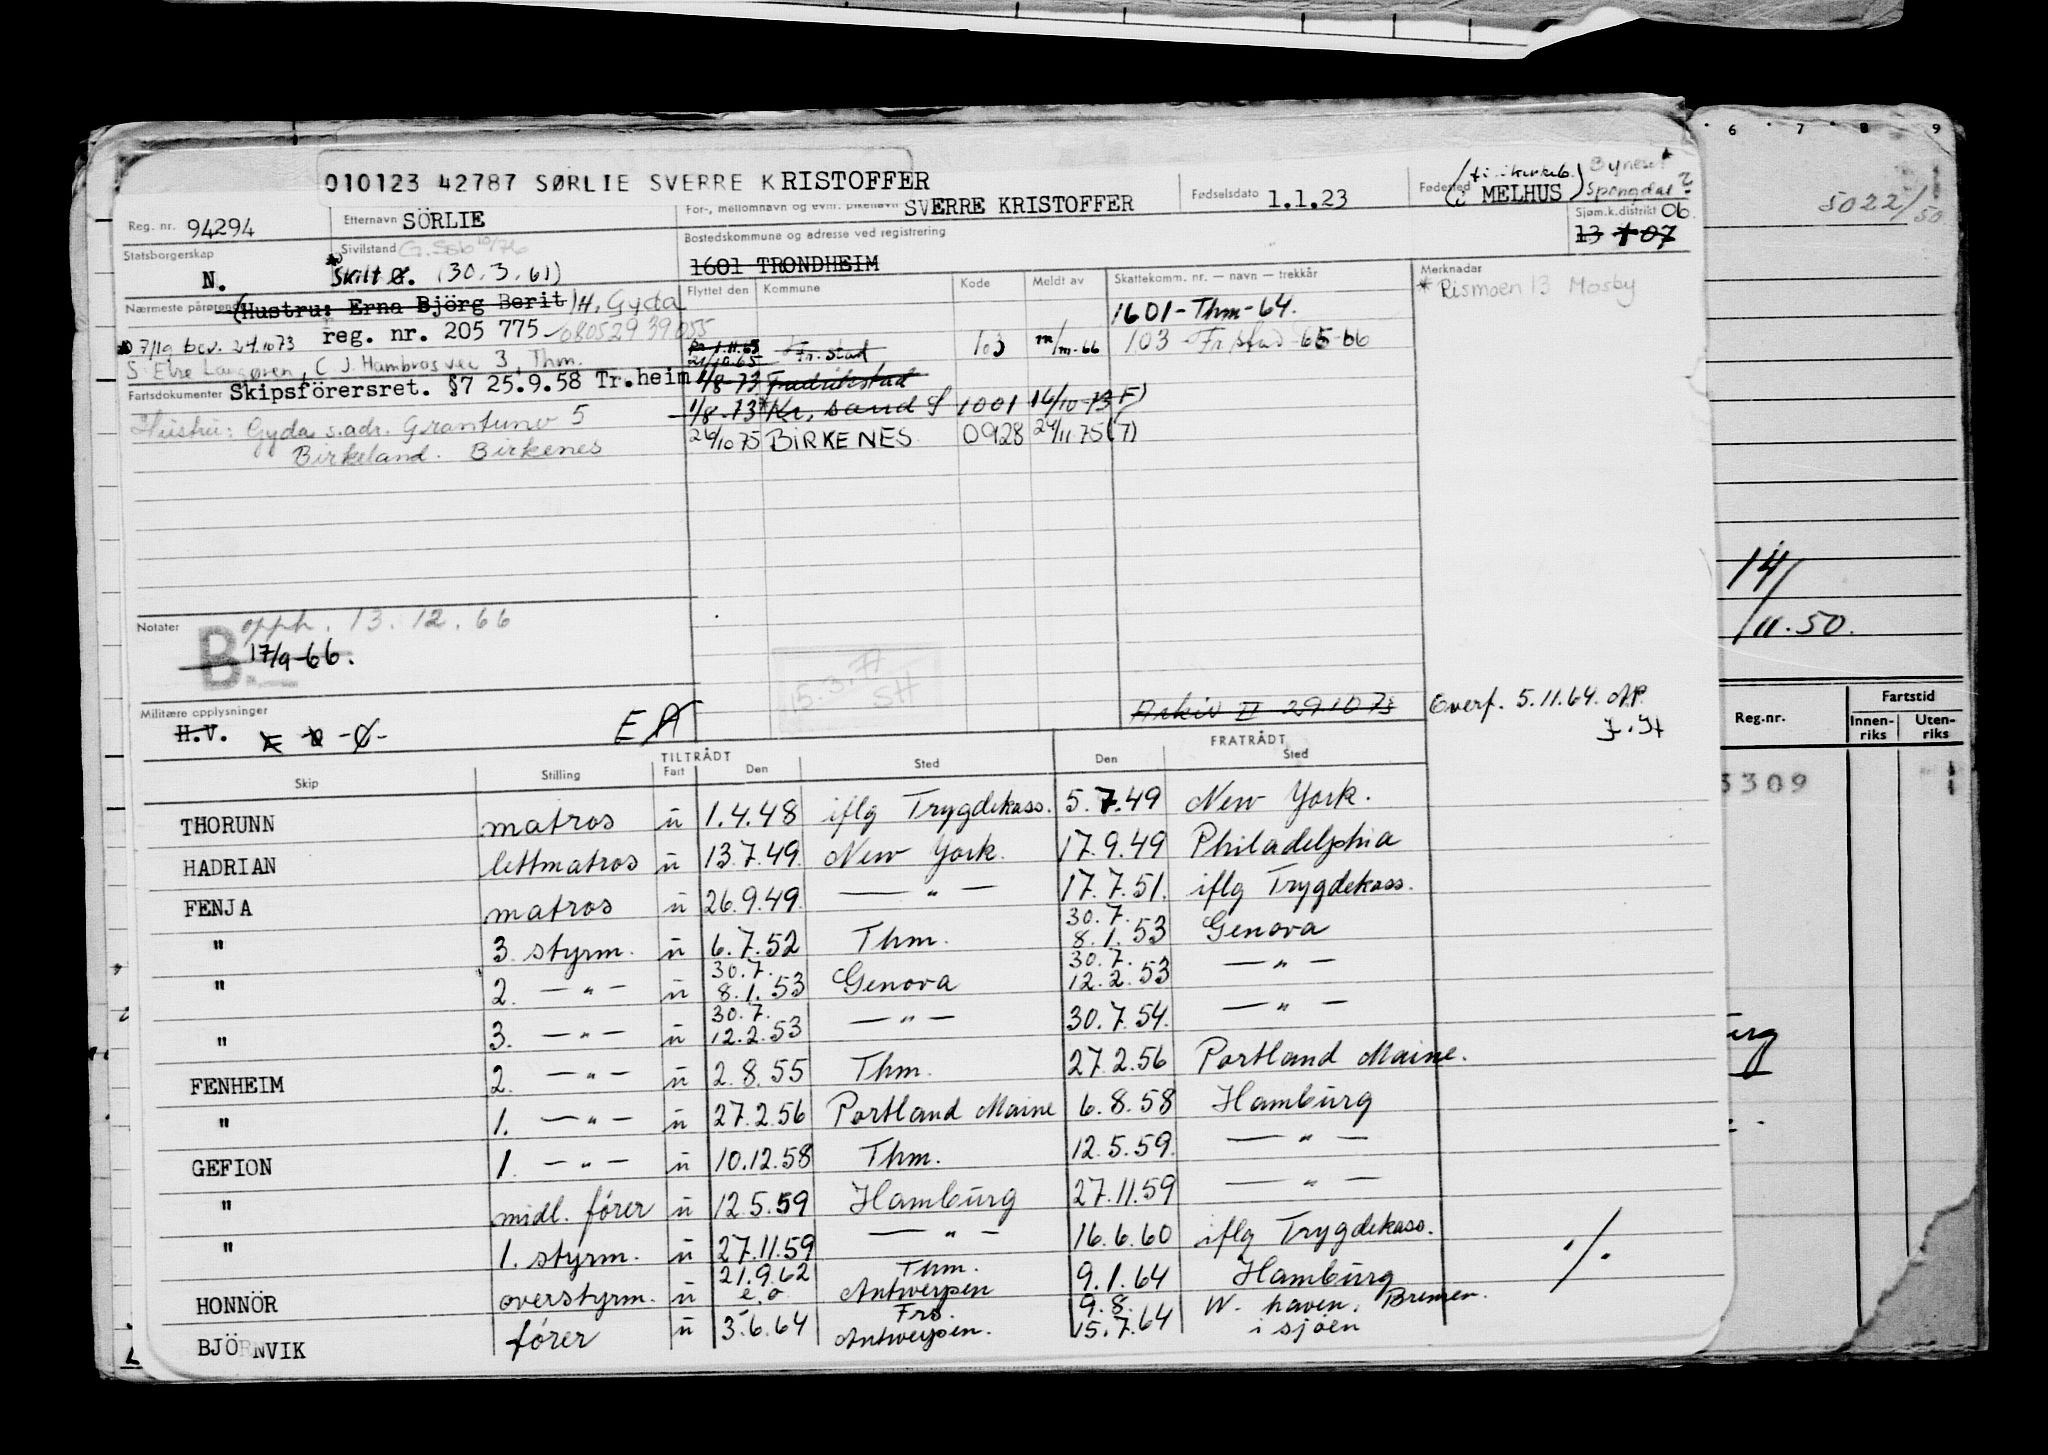 6 7 8 9
010123 42787 SØRLIE SVERRE KRISTOFFER
Reg. nr. 94294 Etternavn SÖRLIE For-, mellomnavn og evnt. pikenavn SVERRE KRISTOFFER Fødselsdato 1.1.23 Fødested MELHUS Spongdal ?
Sjøm.k.distrikt 06
13 + 07
5022/50
Statsborgerskap N. Sivilstand Skilt Ø. (30.3.61) Bostedskommune og adresse ved registrering
1601 TRONDHEIM
Nærmeste pårørende (Hustru: Erna Björg Berit) H. Gyda
Flyttet den Kommune Kode Meldt av Skattekomm. nr. — navn — trekkår Merknader
1601 - Thm - 64. * Rismoen 13 Mosby
reg. nr. 205 775 - 080529 39055
7/19 bev. 24.10 73
fr. 1.11.65
21/10.65 Fr.stad 103 m/m-66 103 Fr.stad -65-66
C J. Hambros vei 3, Thm.
Fartsdokumenter Skipsförersret. §7 25.9.58 Tr.heim
1/8-73 Fredrikstad
1/8-73 * Kr, sand S 1001 16/10-73 F)
26/10 75 BIRKENES 0928 24/11 75 (7)
Hustru: Gyda s.adr. Grantuno 5
Birkeland. Birkenes
14/
/11.50.
Notater B opph. 13.12.66
17/9-66.
15.3.77
SH
Militære opplysninger
H.V. -Ø- EA
Arkiv II 29.10.73 Overf. 5.11.64.
TILTRÅDT FRATRÅDT
Skip Stilling Fart Den Sted Den Sted
Reg.nr. Fartstid
Innen-riks Uten-riks
3309
THORUNN matros u 1.4.48 iflg Trygdekass. 5.7.49 New York.
HADRIAN lettmatros u 13.7.49. New York. 17.9.49 Philadelphia
FENJA matros u 26.9.49. — " — 17.7.51. iflg Trygdekass.
" 3 styrm. u 6.7.52 Thm. 30.7. 8.1.53 Genova
" 2. — " — u 30.7. 8.1.53 Genova 30.7. 12.2.53 — " —
" 3. — " — u 30.7. 12.2.53 — " — 30.7.54. — " —
FENHEIM 2. — " — u 2.8.55 Thm. 27.2.56 Portland Maine.
" 1. — " — u 27.2.56 Portland Maine 6.8.58 Hamburg
GEFION 1. — " — u 10.12.58 Thm. 12.5.59. — " —
" midl. fører u 12.5.59 Hamburg 27.11.59 — " —
" 1. styrm. u 27.11.59 — " — 16.6.60 iflg Trygdekass. ./.
HONNÖR overstyrm. u 21.9.62 e.o. Thm. Antwerpen 9.1.64 Hamburg
BJÖRNVIK fører u 3.6.64 Frs. Antwerpen. 9.8. 15.7.64 W. haven. Bremen. i sjøen